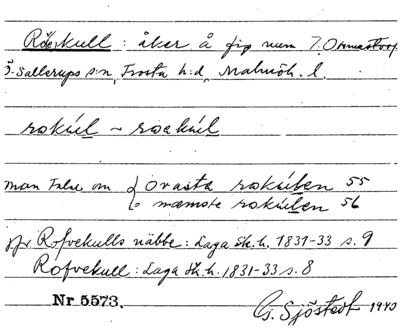 kull: åker å fig num 7. Ormastorp
Ö. Sallerups s:n, Frosta h:d, Malmöh. l.
rokúel ~ roakúel
man talar om { ovasta rokúelen 55
o mæmste rokúelen 56
jfr Rofvekulls näbbe: Laga sk.h. 1831-33 s. 9
Rofvekull: Laga sk.h. 1831-33 s. 8
Nr. 5573.
G. Sjöstedt 1940